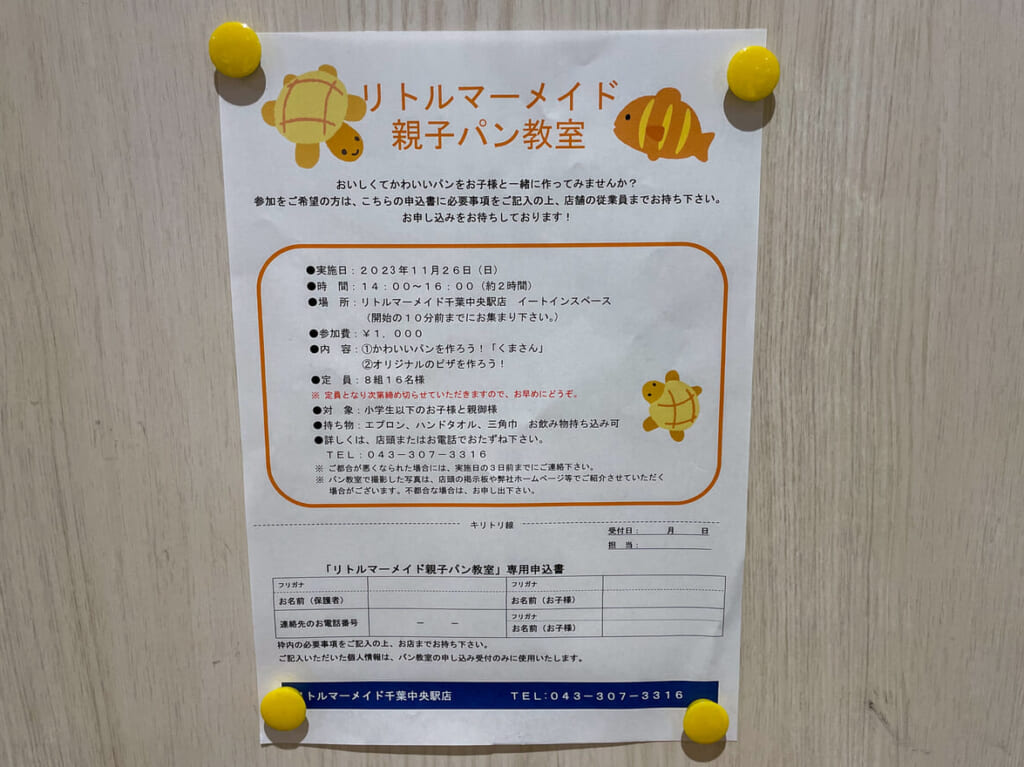 リトルマーメイド
親子パン教室
おいしくてかわいいパンをお子様と一緒に作ってみませんか？
参加をご希望の方は、こちらの申込書に必要事項をご記入の上、店舗の従業員までお持ち下さい。
お申し込みをお待ちしております！
●実施日：２０２３年１１月２６日（日）
●時　間：１４：００～１６：００（約２時間）
●場　所：リトルマーメイド千葉中央駅店　イートインスペース
（開始の１０分前までにお集まり下さい。）
●参加費：￥１，０００
●内　容：①かわいいパンを作ろう！「くまさん」
②オリジナルのピザを作ろう！
●定　員：８組１６名様
※ 定員となり次第締め切らせていただきますので、お早めにどうぞ。
●対　象：小学生以下のお子様と親御様
●持ち物：エプロン、ハンドタオル、三角巾　お飲み物持ち込み可
●詳しくは、店頭またはお電話でおたずね下さい。
ＴＥＬ：０４３－３０７－３３１６
※ ご都合が悪くなられた場合には、実施日の３日前までにご連絡下さい。
※ パン教室で撮影した写真は、店頭の掲示板や弊社ホームページ等でご紹介させていただく
場合がございます。不都合な場合は、お申し出下さい。
キリトリ線
受付日：　　月　　日
担　当：
「リトルマーメイド親子パン教室」専用申込書
フリガナ　フリガナ
お名前（保護者）　お名前（お子様）
連絡先のお電話番号　－　－　フリガナ
お名前（お子様）
枠内の必要事項をご記入の上、お店までお持ち下さい。
ご記入いただいた個人情報は、パン教室の申し込み受付のみに使用いたします。
リトルマーメイド千葉中央駅店　ＴＥＬ：０４３－３０７－３３１６